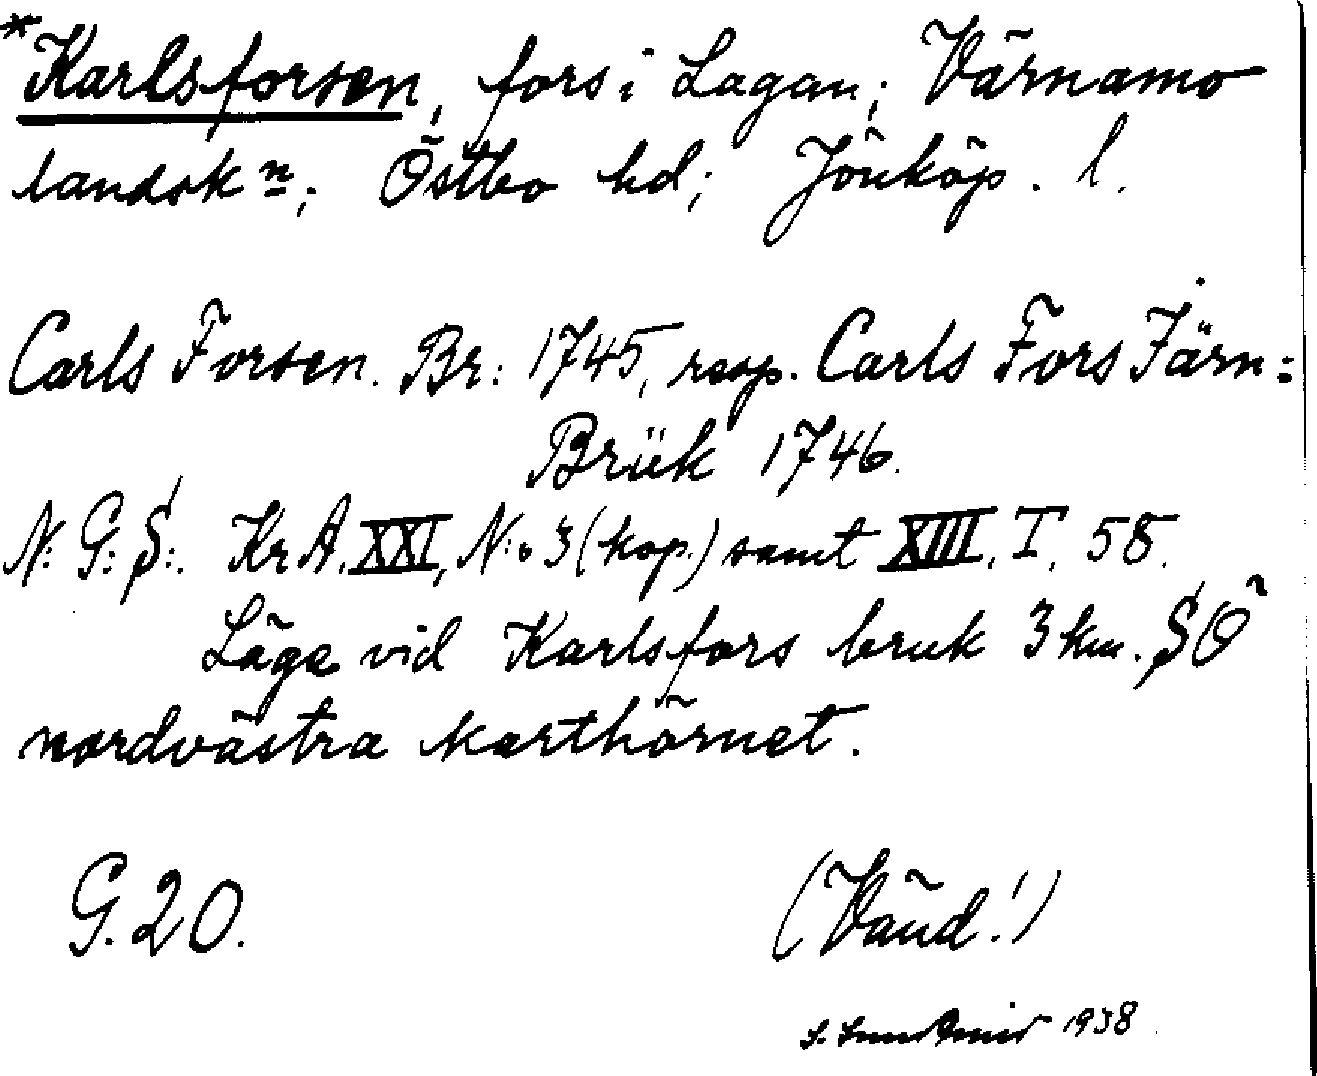 *Karlsforsen, fors i Lagan; Värnamo
landskn; Östbo hd; Jönköp. l.
Carls Forsen. Br: 1745, resp. Carls Fors Järn=
Brük 1746.
N: G: S:. KrA. XXI, N:o 3 (kop.) samt XIII. I, 58.
Läge vid Karlsfors bruk 3 km. SÖ
nordvästra karthörnet.
G. 20.
(Vänd!)
S. 1938